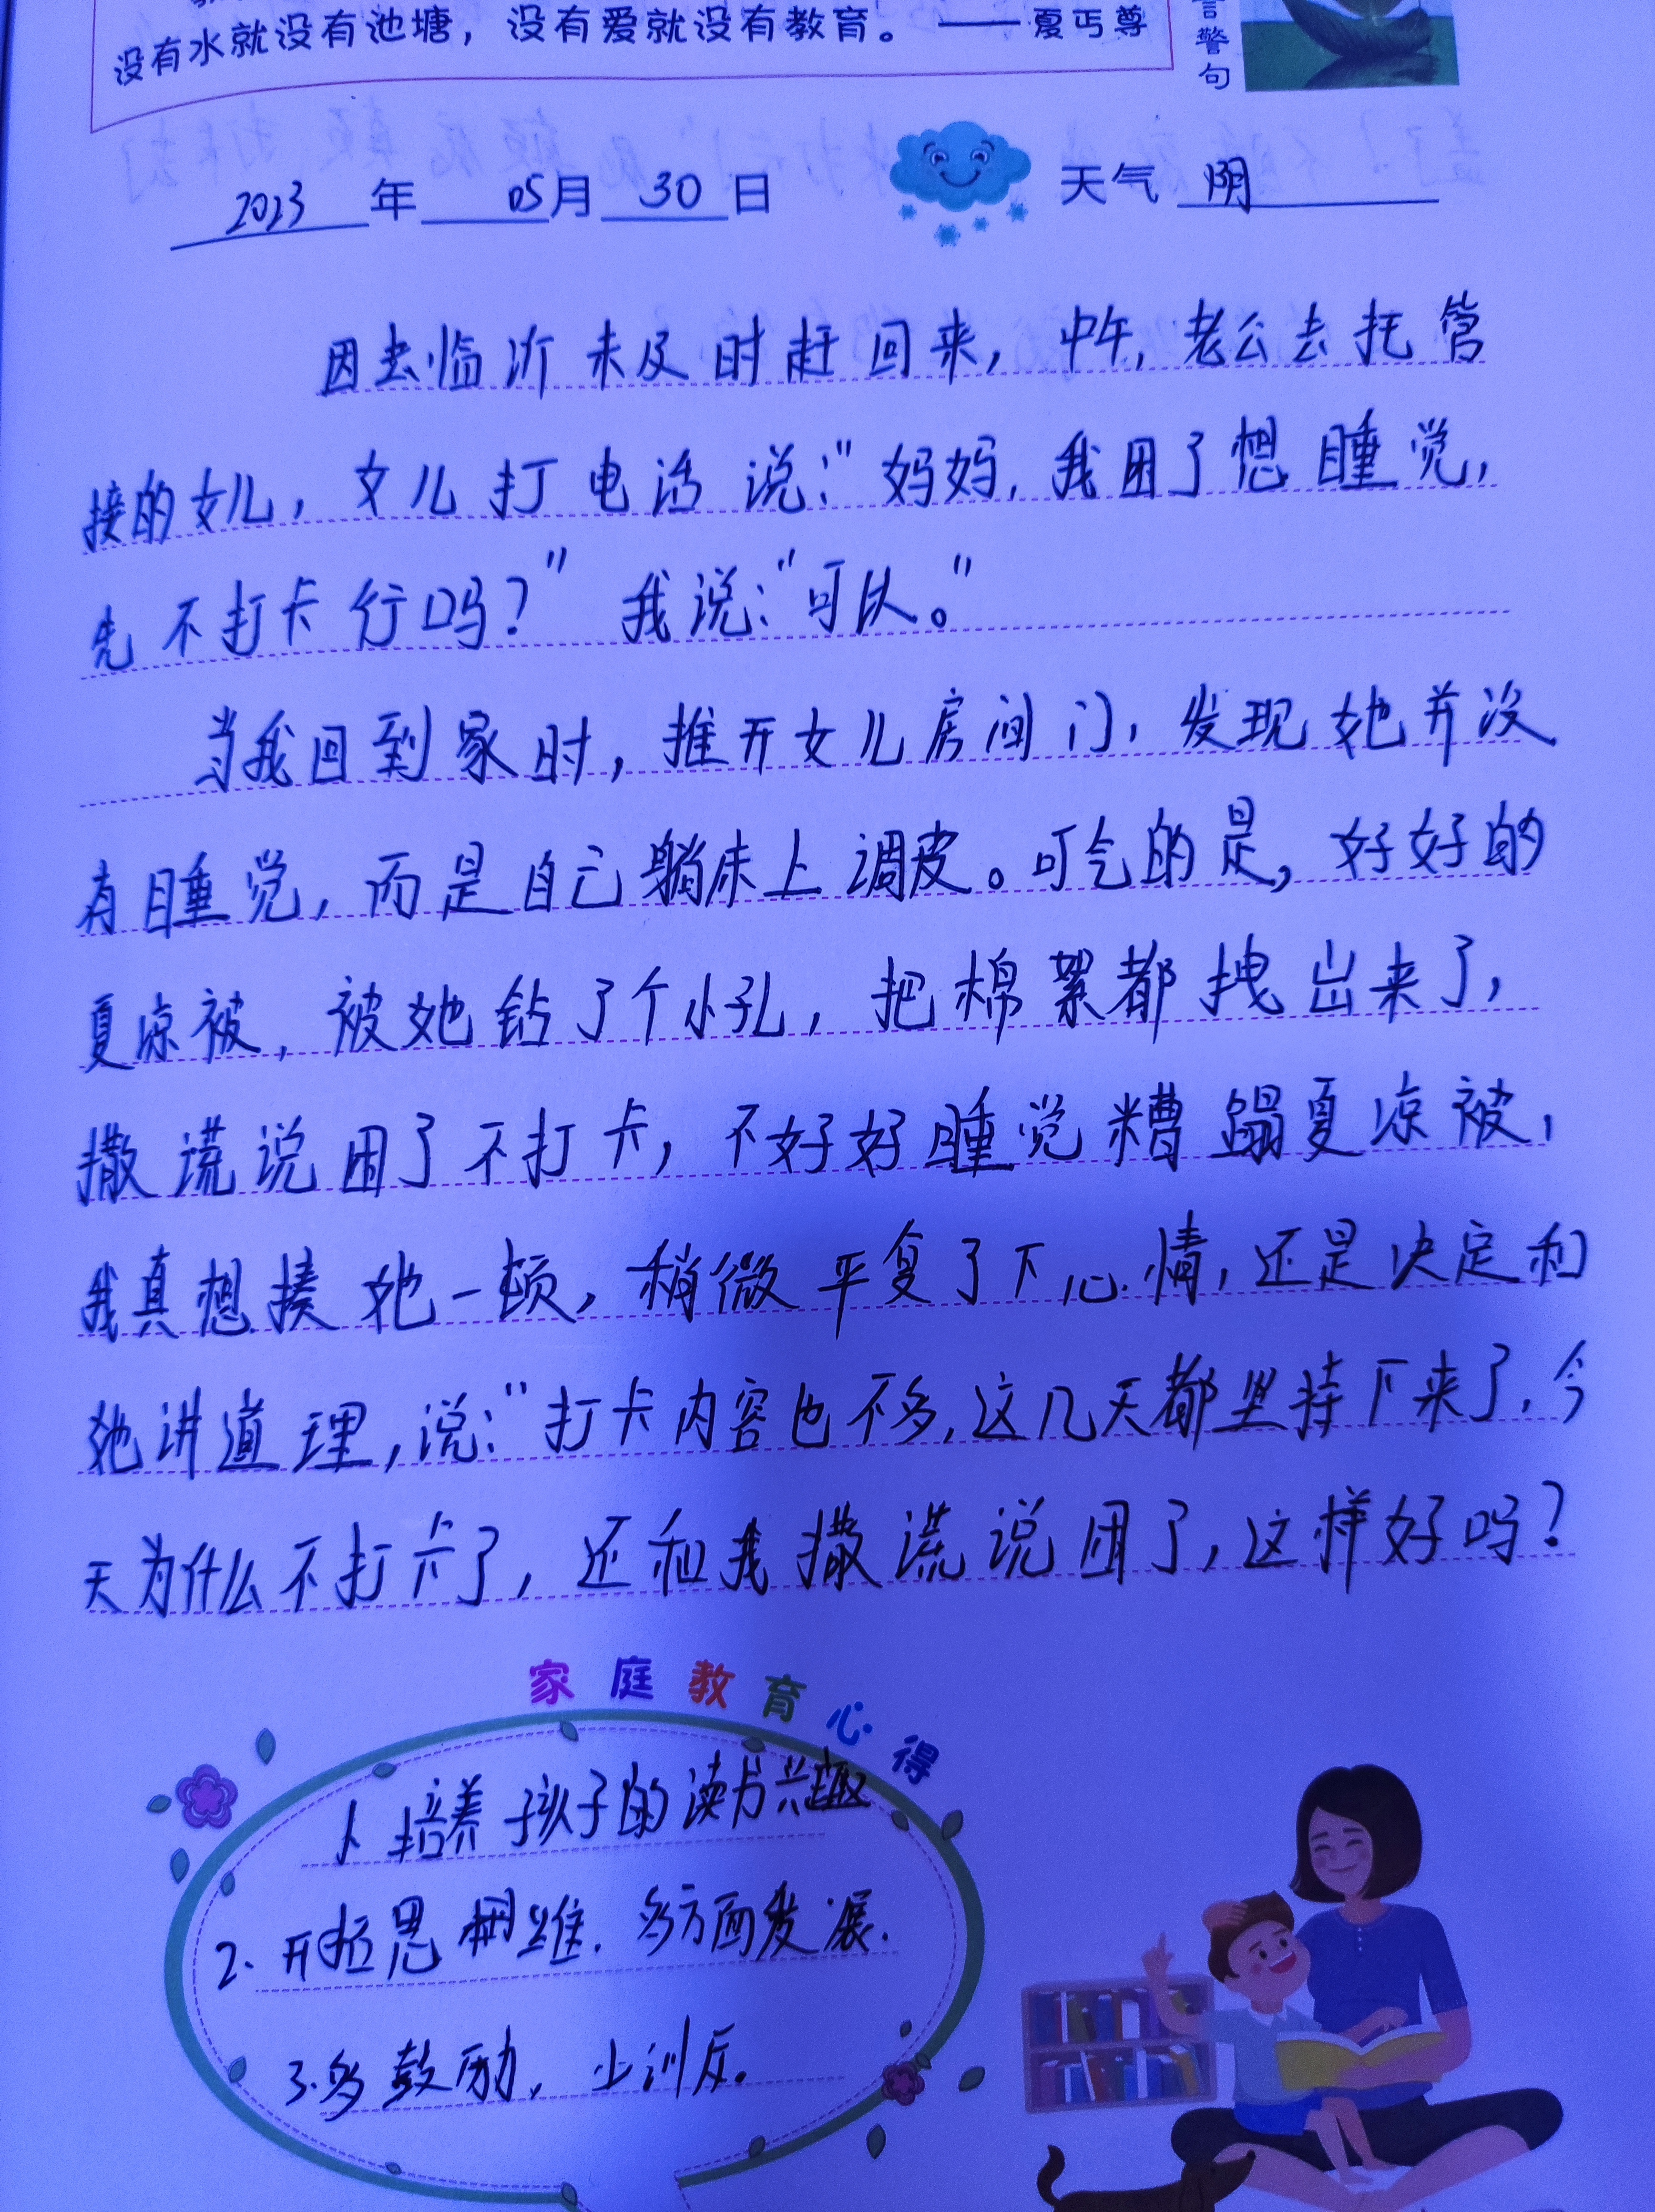 没有水就没有池塘，没有爱就没有教育。 —— 夏丏尊
警句
2023 年 05月 30 日 天气 阴
因去临沂未及时赶回来，中午，老公去托管
接的女儿，女儿打电话说：“妈妈，我困了想睡觉，
先不打卡行吗？”我说：“可以。”
当我回到家时，推开女儿房间门，发现她并没
有睡觉，而是自己躺床上调皮。可气的是，好好的
夏凉被，被她钻了个小孔，把棉絮都拽出来了，
撒谎说困了不打卡，不好好睡觉糟蹋夏凉被，
我真想揍她一顿，稍微平复了下心情，还是决定和
她讲道理，说：“打卡内容也不多，这几天都坚持下来了，今
天为什么不打卡了，还和我撒谎说困了，这样好吗？
家庭教育心得
1. 培养孩子的读书兴趣
2. 开拓思维，多方面发展.
3.多鼓励，少训斥.